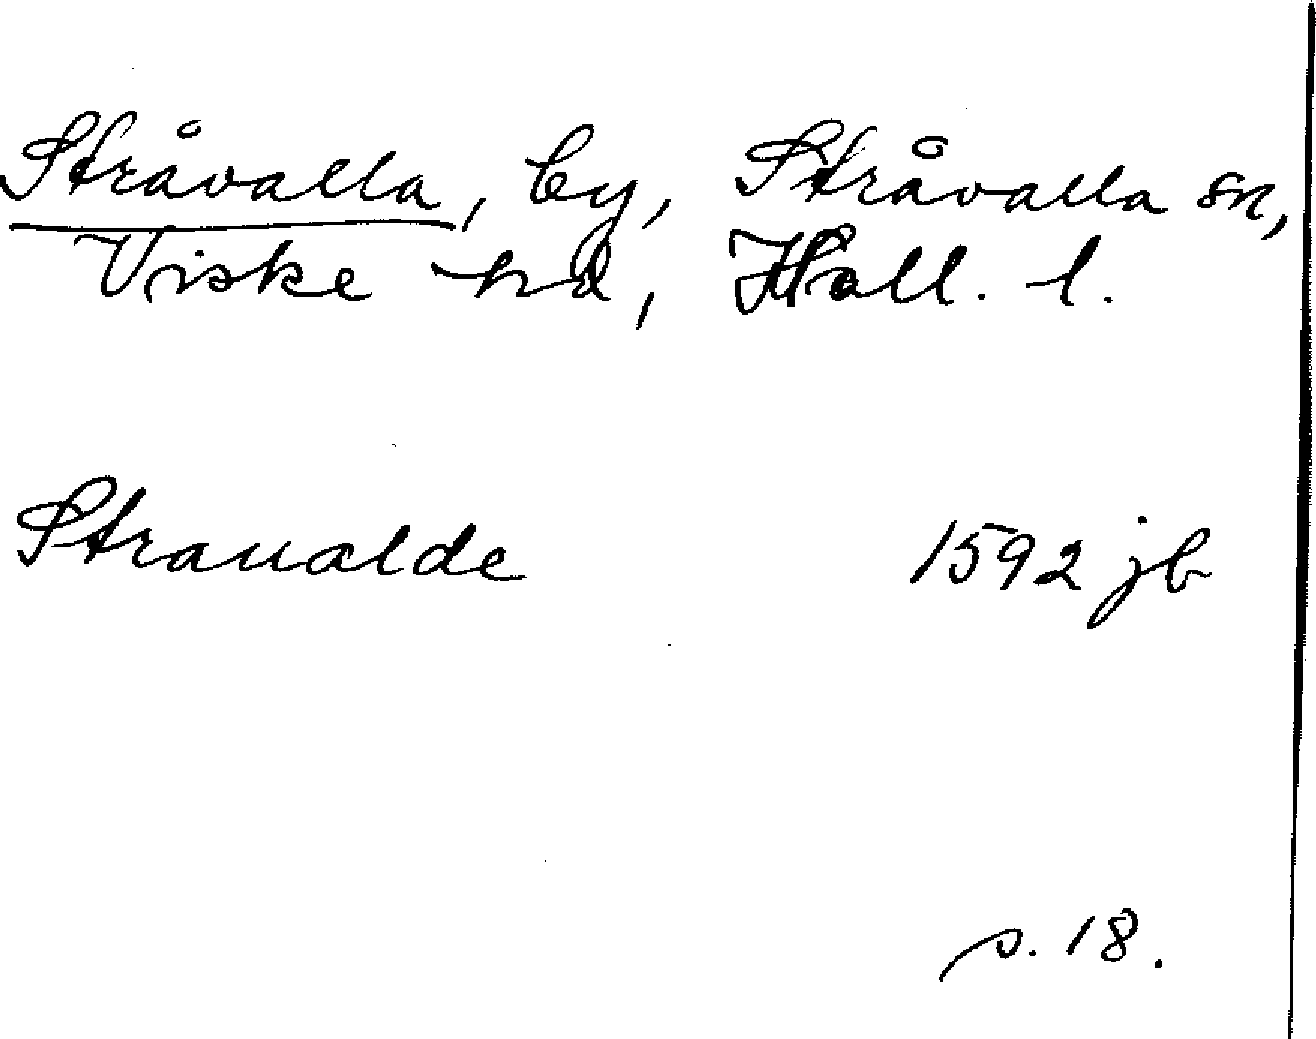 Stråvalla, by, Stråvalla sn,
Viske hd, Hall. l.
Straualde 1592 jb
s. 18.